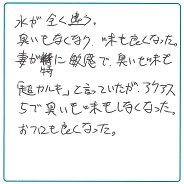 水が全く違う。
臭いもなくなり、味も良くなった。
妻が特に敏感で、臭いも味も
「超カルキ」と言っていたが、アクアス
5で臭いも味もしなくなった。
お フロも良くなった。